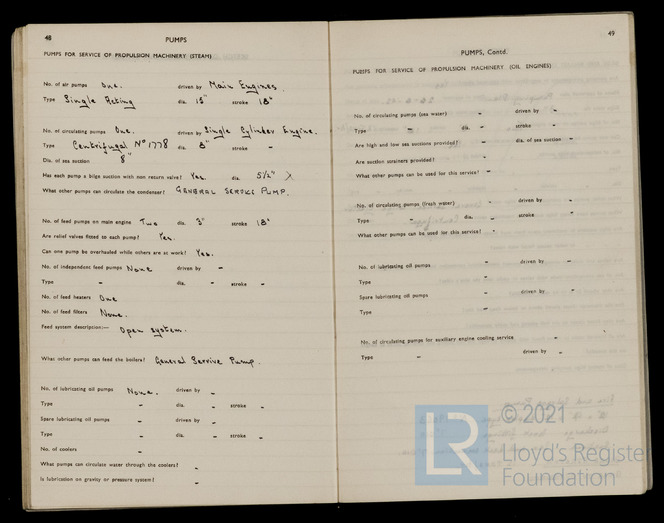 48
PUMPS
PUMPS FOR SERVICE OF PROPULSION MACHINERY (STEAM)
No. of air pumps One. driven by Main Engines.
Type Single Acting dia. 15" stroke 18"
No. of circulating pumps One. driven by Single Cylinder Engine.
Type Centrifugal No 1778 dia. 8" stroke -
Dia. of sea suction 8"
Has each pump a bilge suction with non return valve? Yes. dia. 5 1/2"
What other pumps can circulate the condenser? GENERAL SERVICE PUMP.
No. of feed pumps on main engine Two dia. 3" stroke 18"
Are relief valves fitted to each pump? Yes.
Can one pump be overhauled while others are at work? Yes.
No. of independent feed pumps None driven by -
Type - dia. - stroke -
No. of feed heaters One
No. of feed filters None.
Feed system description:— Open system.
What other pumps can feed the boilers? General Service Pump.
No. of lubricating oil pumps None. driven by -
Type - dia. - stroke -
Spare lubricating oil pumps - driven by -
Type - dia. - stroke -
No. of coolers -
What pumps can circulate water through the coolers? -
Is lubrication on gravity or pressure system? -
49
PUMPS, Contd.
PUMPS FOR SERVICE OF PROPULSION MACHINERY (OIL ENGINES)
No. of circulating pumps (sea water) - driven by -
Type - dia. - stroke -
Are high and low sea suctions provided? - dia. of sea suction -
Are suction strainers provided? -
What other pumps can be used for this service? -
No. of circulating pumps (fresh water) - driven by -
Type - dia. - stroke -
What other pumps can be used for this service? -
No. of lubricating oil pumps - driven by -
Type -
Spare lubricating oil pumps - driven by -
Type -
No. of circulating pumps for auxiliary engine cooling service -
Type - driven by -
LR
© 2021
Lloyd's Register
Foundation